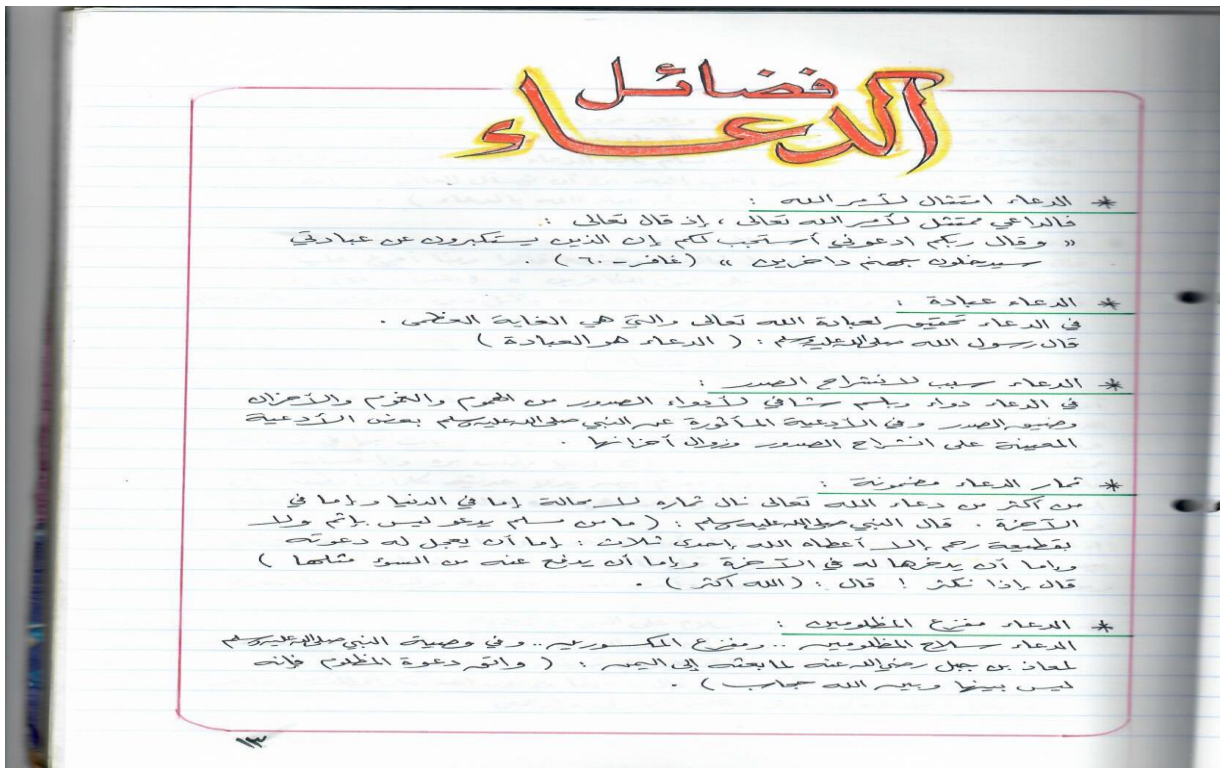 فضائل
الدعاء
* الدعاء امتثال لأمر الله :
فالداعي ممتثل لأمر الله تعالى ، إذ قال تعالى :
« وقال ربكم ادعوني أستجب لكم إن الذين يستكبرون عن عبادتي
سيدخلون جهنم داخرين » (غافر - ٦٠) .
* الدعاء عبادة :
في الدعاء تحقيق لعبادة الله تعالى والتي هي الغاية العظمى .
قال رسول الله صلى الله عليه وسلم : ( الدعاء هو العبادة )
* الدعاء سبب لانشراح الصدر :
في الدعاء دواء وبلسم شافي لأدواء الصدور من الهموم والغموم والأحزان
وضيق الصدر وفي الأدعية المأثورة عن النبي صلى الله عليه وسلم بعض الأدعية
المعينة على انشراح الصدور وزوال أحزانها .
* ثمار الدعاء مضمونة :
من أكثر من دعاء الله تعالى نال ثماره لا محالة إما في الدنيا وإما في
الآخرة . قال النبي صلى الله عليه وسلم : ( ما من مسلم يدعو ليس بإثم ولا
بقطيعة رحم إلا أعطاه الله إحدى ثلاث : إما أن يعجل له دعوته
وإما أن يدخرها له في الآخرة وإما أن يدفع عنه من السوء مثلها )
قال إذا نكثر ! قال : ( الله أكثر ) .
* الدعاء مفزع المظلومين :
الدعاء سلاح المظلومين .. ومفزع المكسورين .. وفي وصية النبي صلى الله عليه وسلم
لمعاذ بن جبل رضي الله عنه لما بعثه إلى اليمن : ( واتق دعوة المظلوم فإنه
ليس بينها وبين الله حجاب ) .
١٣